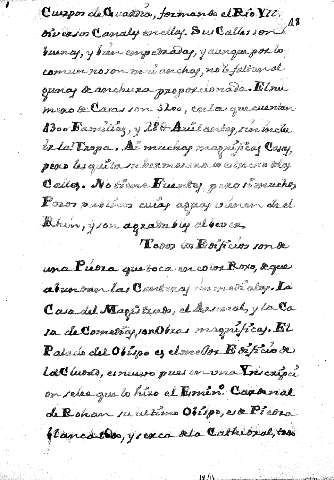 Cuerpos de Guardia, formando el Rio Yll
diversos Canales en ellos. Sus Calles son
buenas, y bien empedradas, y aunque por lo
comun no son muí anchas, no le faltan al
gunas de anchura proporcionada. El nu
mero de Casas son 3200, en las que cuentan
4300 Familias, y Avitantes, sin inclu
de la Tropa. Ai muchas magnificas Casas,
pero les quita su hermosura lo estrecho de las
Calles. No tiene Fuentes, pero si muchos
Pozos publicos cuias aguas vienen de el
Rhin, y son agradables al bever.
Todos los Edificios son de
una Piedra que toca en color Roxo, de que
abundan las Canteras inmediatas. La
Casa del Magistrado, el Arsenal, y la Ca
sa de Comedias, son Obras magnificas. El
Palacio del Obispo es el mejor Edificio de
la Ciudad, es nuevo pues en una Ynscripci
on se lee que lo hizo el Emin. Cardenal
de Rohan su ultimo Obispo, es de Piedra
blanca todo, y cerca de la Cathedral, todo